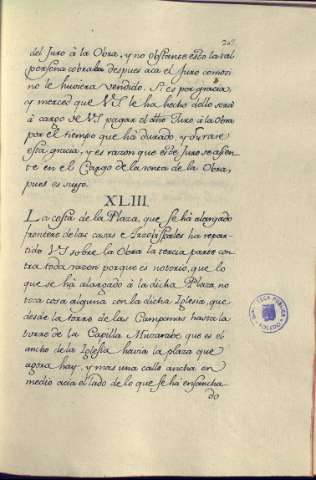 217
del Juro à la Obra, y no obstante esto la tal
persona cobraba despues aca el Juro como si
no le huviera vendido. Si es por gracia,
y merced que V.S. le ha hecho dello será
à cargo de V.S. pagar el dho Juro, à la Obra
por el tiempo que ha durado, y durare
esta gracia, y es razon que este Juro se asien
te en el Cargo de la renta de la Obra,
pues es suyo.
XLIII.
La costa de la Plaza, que se há alargado
frontero de las casas se ha repar-
tido V.S. sobre la Obra la tercia parte con
tra toda razon porque es notorio, que lo
que se há alargado à la dicha Plaza no
toca cosa alguna con la dicha Iglesia, que
desde la torre de las Campanas hasta la
torre de la Capilla Muzarabe que es el
ancho de la Iglesia havia la plaza que
agora hay, y mas una calle ancha en
medio acia el lado de lo que se há ensancha
do
BIBLIOTECA PUBLICA
TOLEDO